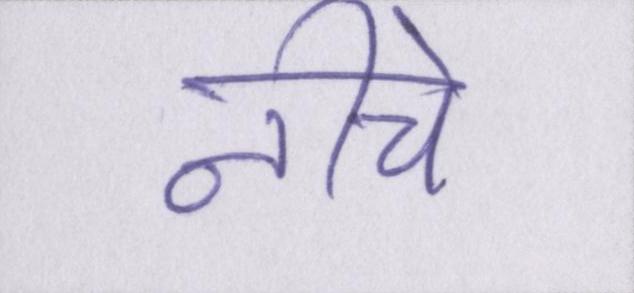 नीचे